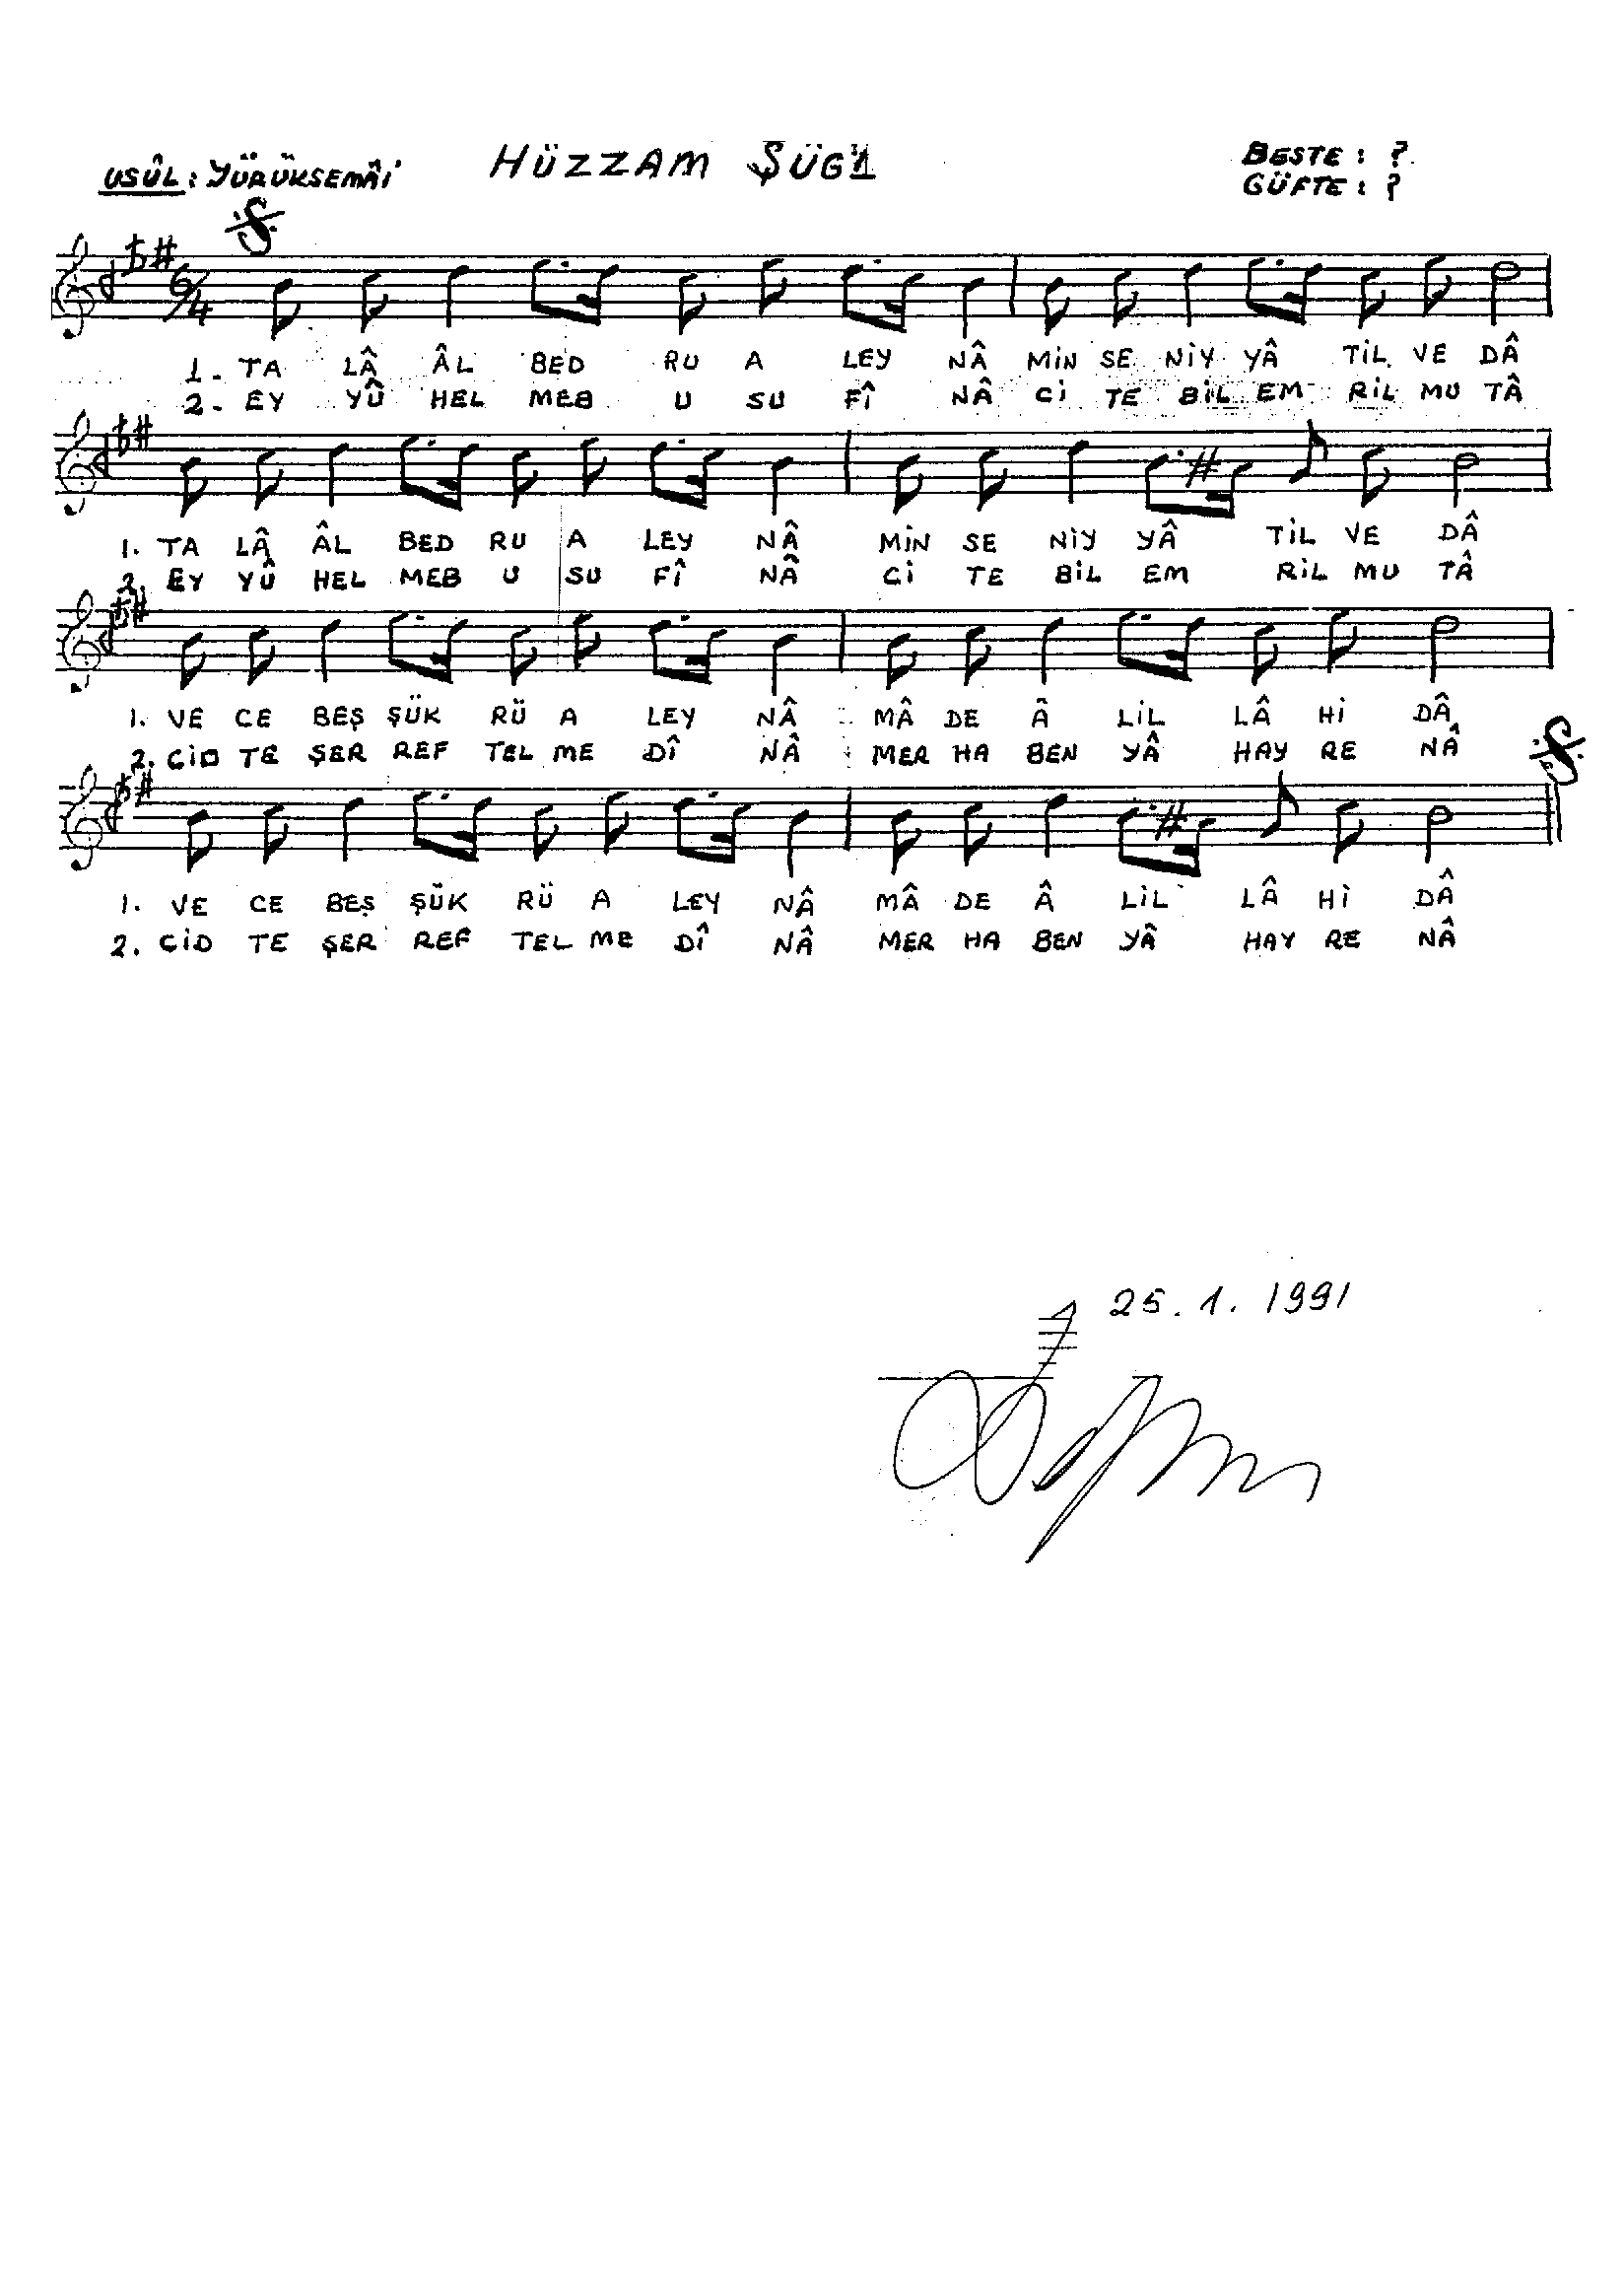 USÛL: YÜRÜKSEMÂİ HÜZZAM ŞÜĞL BESTE: ?
GÜFTE: ?
6/4
1- TA LÂ ÂL BED RU A LEY NÂ MİN SE NİY YÂ TİL VE DÂ
2- EY YÛ HEL MEB U SU FÎ NÂ Cİ TE BİL EM RİL MU TÂ
1. TA LÂ ÂL BED RU A LEY NÂ MİN SE NİY YÂ TİL VE DÂ
2. EY YÛ HEL MEB U SU FÎ NÂ Cİ TE BİL EM RİL MU TÂ
1. VE CE BEŞ ŞÜK RÜ A LEY NÂ MÂ DE Â LİL LÂ Hİ DÂ
2. CİD TE ŞER REF TEL ME DÎ NÂ MER HA BEN YÂ HAY RE NÂ
1. VE CE BEŞ ŞÜK RÜ A LEY NÂ MÂ DE Â LİL LÂ Hİ DÂ
2. CİD TE ŞER REF TEL ME DÎ NÂ MER HA BEN YÂ HAY RE NÂ
25.1.1991